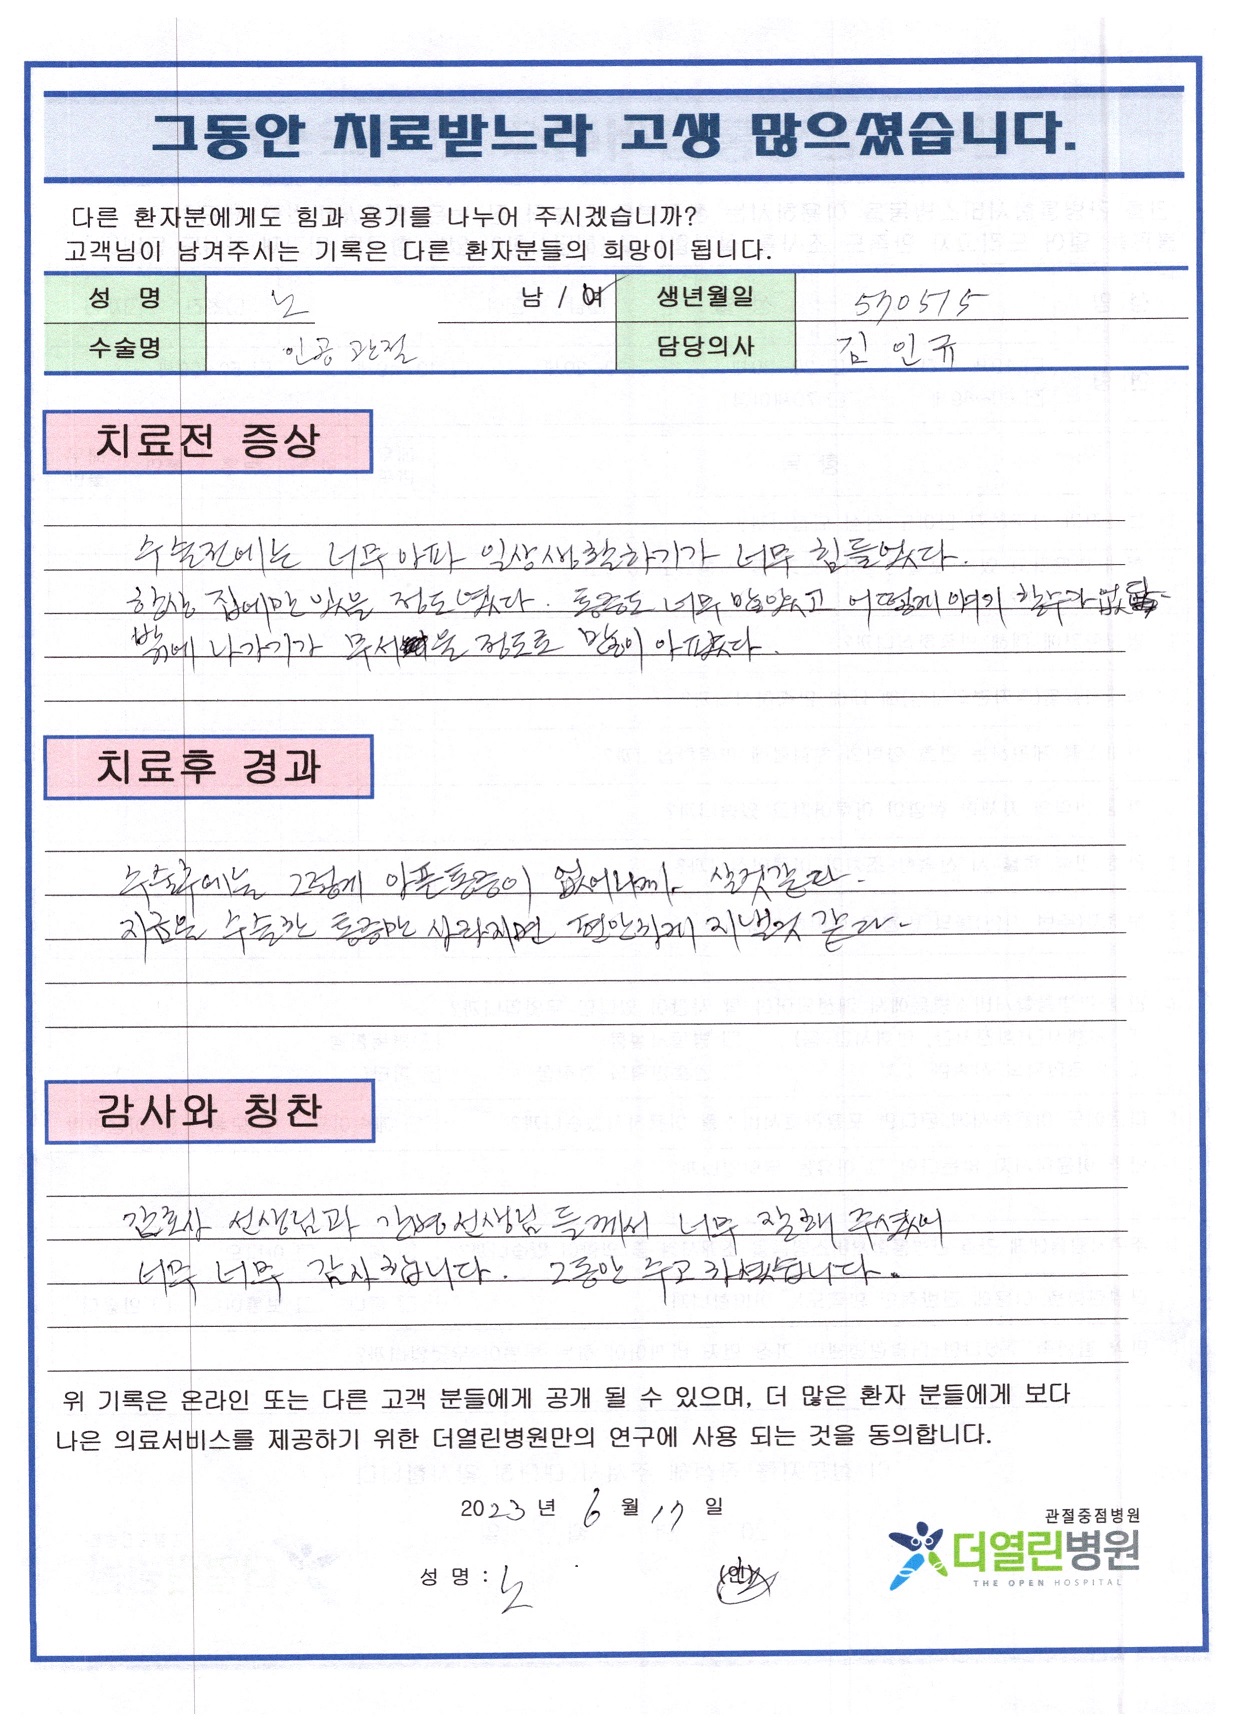 그동안 치료받느라 고생 많으셨습니다.
다른 환자분에게도 힘과 용기를 나누어 주시겠습니까?
고객님이 남겨주시는 기록은 다른 환자분들의 희망이 됩니다.
성 명 노 남 / 여 생년월일 570515
수술명 인공관절 담당의사 김인규
치료전 증상
수술전에는 너무 아파 일상생활하기가 너무 힘들었다.
항상 집에만 있을 정도였다. 통증도 너무 많았고 어떻게 할수가 없
밖에 나가기가 무서 을 정도로 많이 아팠다.
치료후 경과
수술후에는 그렇게 아픈통증이 없어니까 살것같다.
지금은 수술한 통증만 사라지면 편안하게 지낼것 같다.
감사와 칭찬
간호사 선생님과 간병선생님 들께서 너무 잘해 주셨어
너무 너무 감사합니다. 그동안 수고하셨습니다.
위 기록은 온라인 또는 다른 고객 분들에게 공개 될 수 있으며, 더 많은 환자 분들에게 보다
나은 의료서비스를 제공하기 위한 더열린병원만의 연구에 사용 되는 것을 동의합니다.
2023 년 6 월 17 일
관절중점병원
더열린병원
THE OPEN HOSPITAL
성 명 : 노 (인)